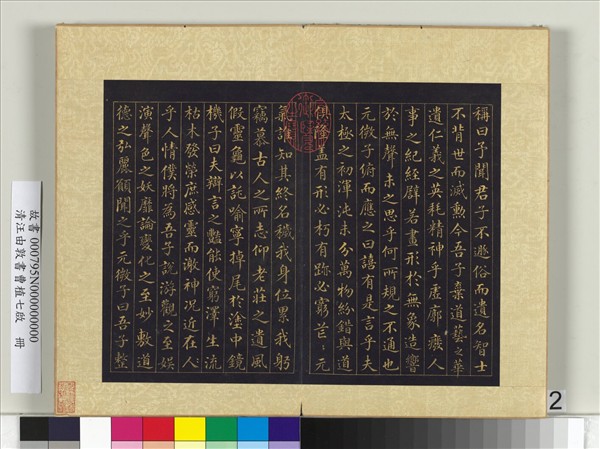 稱曰予聞君子不遯俗而遺名智士
不背世而滅勲今吾子棄道藝之華
遺仁義之英耗精神乎虛廓癈人
事之紀經譬若畫形於無象造響
於無聲未之思乎何所規之不通也
元微子俯而應之曰譆有是言乎夫
太極之初渾沌未分萬物紛錯與道
俱隆蓋有形必朽有跡必窮芒〻元
氣誰知其終名穢我身位累我躬
竊慕古人之所志仰老莊之遺風
假靈龜以託喻寧掉尾於塗中鏡
機子曰夫辯言之豔能使窮澤生流
枯木發榮庶感靈而激神况近在
乎人情僕將為吾子說游觀之至娱
演聲色之妖靡論變化之至妙敷道
德之弘麗願聞之乎元微子曰吾子整
故書 000795N000000000
清汪由敦書曹植七啟 冊
2